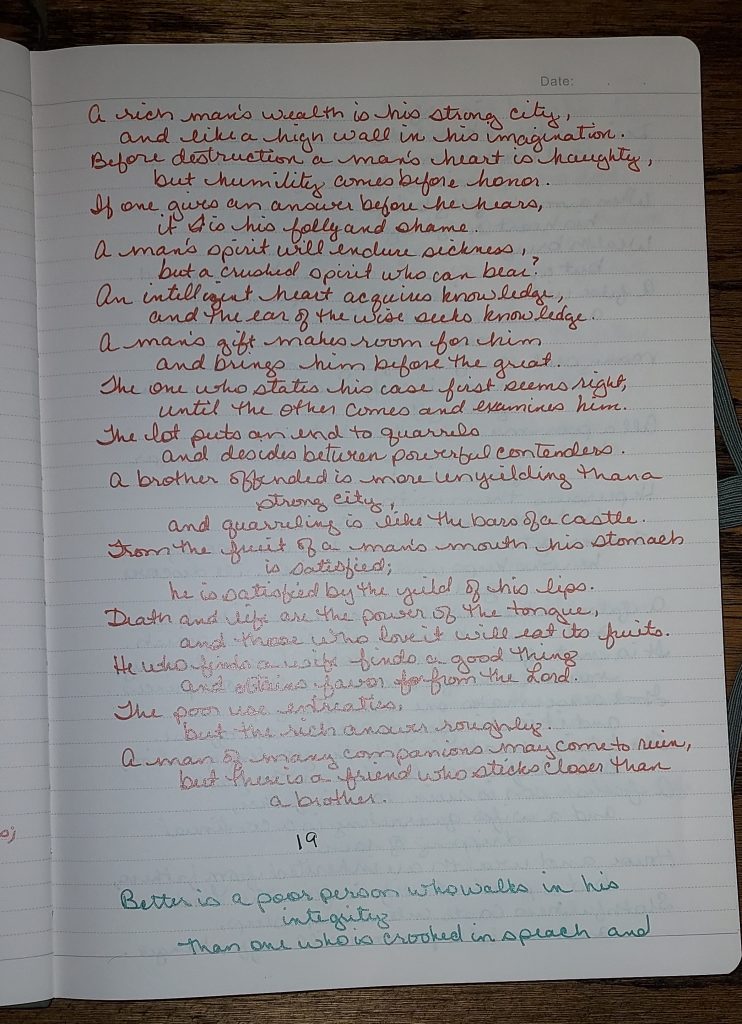 Date:
A rich man's wealth is his strong city,
and like a high wall in his imagination.
Before destruction a man's heart is haughty,
but humility comes before honor.
If one gives an answer before he hears,
it is his folly and shame.
A man's spirit will endure sickness,
but a crushed spirit who can bear?
An intelligent heart acquires knowledge,
and the ear of the wise seeks knowledge.
A man's gift makes room for him
and brings him before the great.
The one who states his case first seems right,
until the other comes and examines him.
The lot puts an end to quarrels
and decides between powerful contenders.
A brother offended is more unyeilding than a
strong city,
and quarreling is like the bars of a castle.
From the fruit of a man's mouth his stomach
is satisfied;
he is satisfied by the yeild of his lips.
Death and life are the power of the tongue,
and those who love it will eat its fruits.
He who finds a wife finds a good thing
and obtains favor from the Lord.
The poor use entreaties,
but the rich answer roughly.
A man of many companions may come to ruin,
but there is a friend who sticks closer than
a brother.
19
Better is a poor person who walks in his
integrity
than one who is crooked in speach and